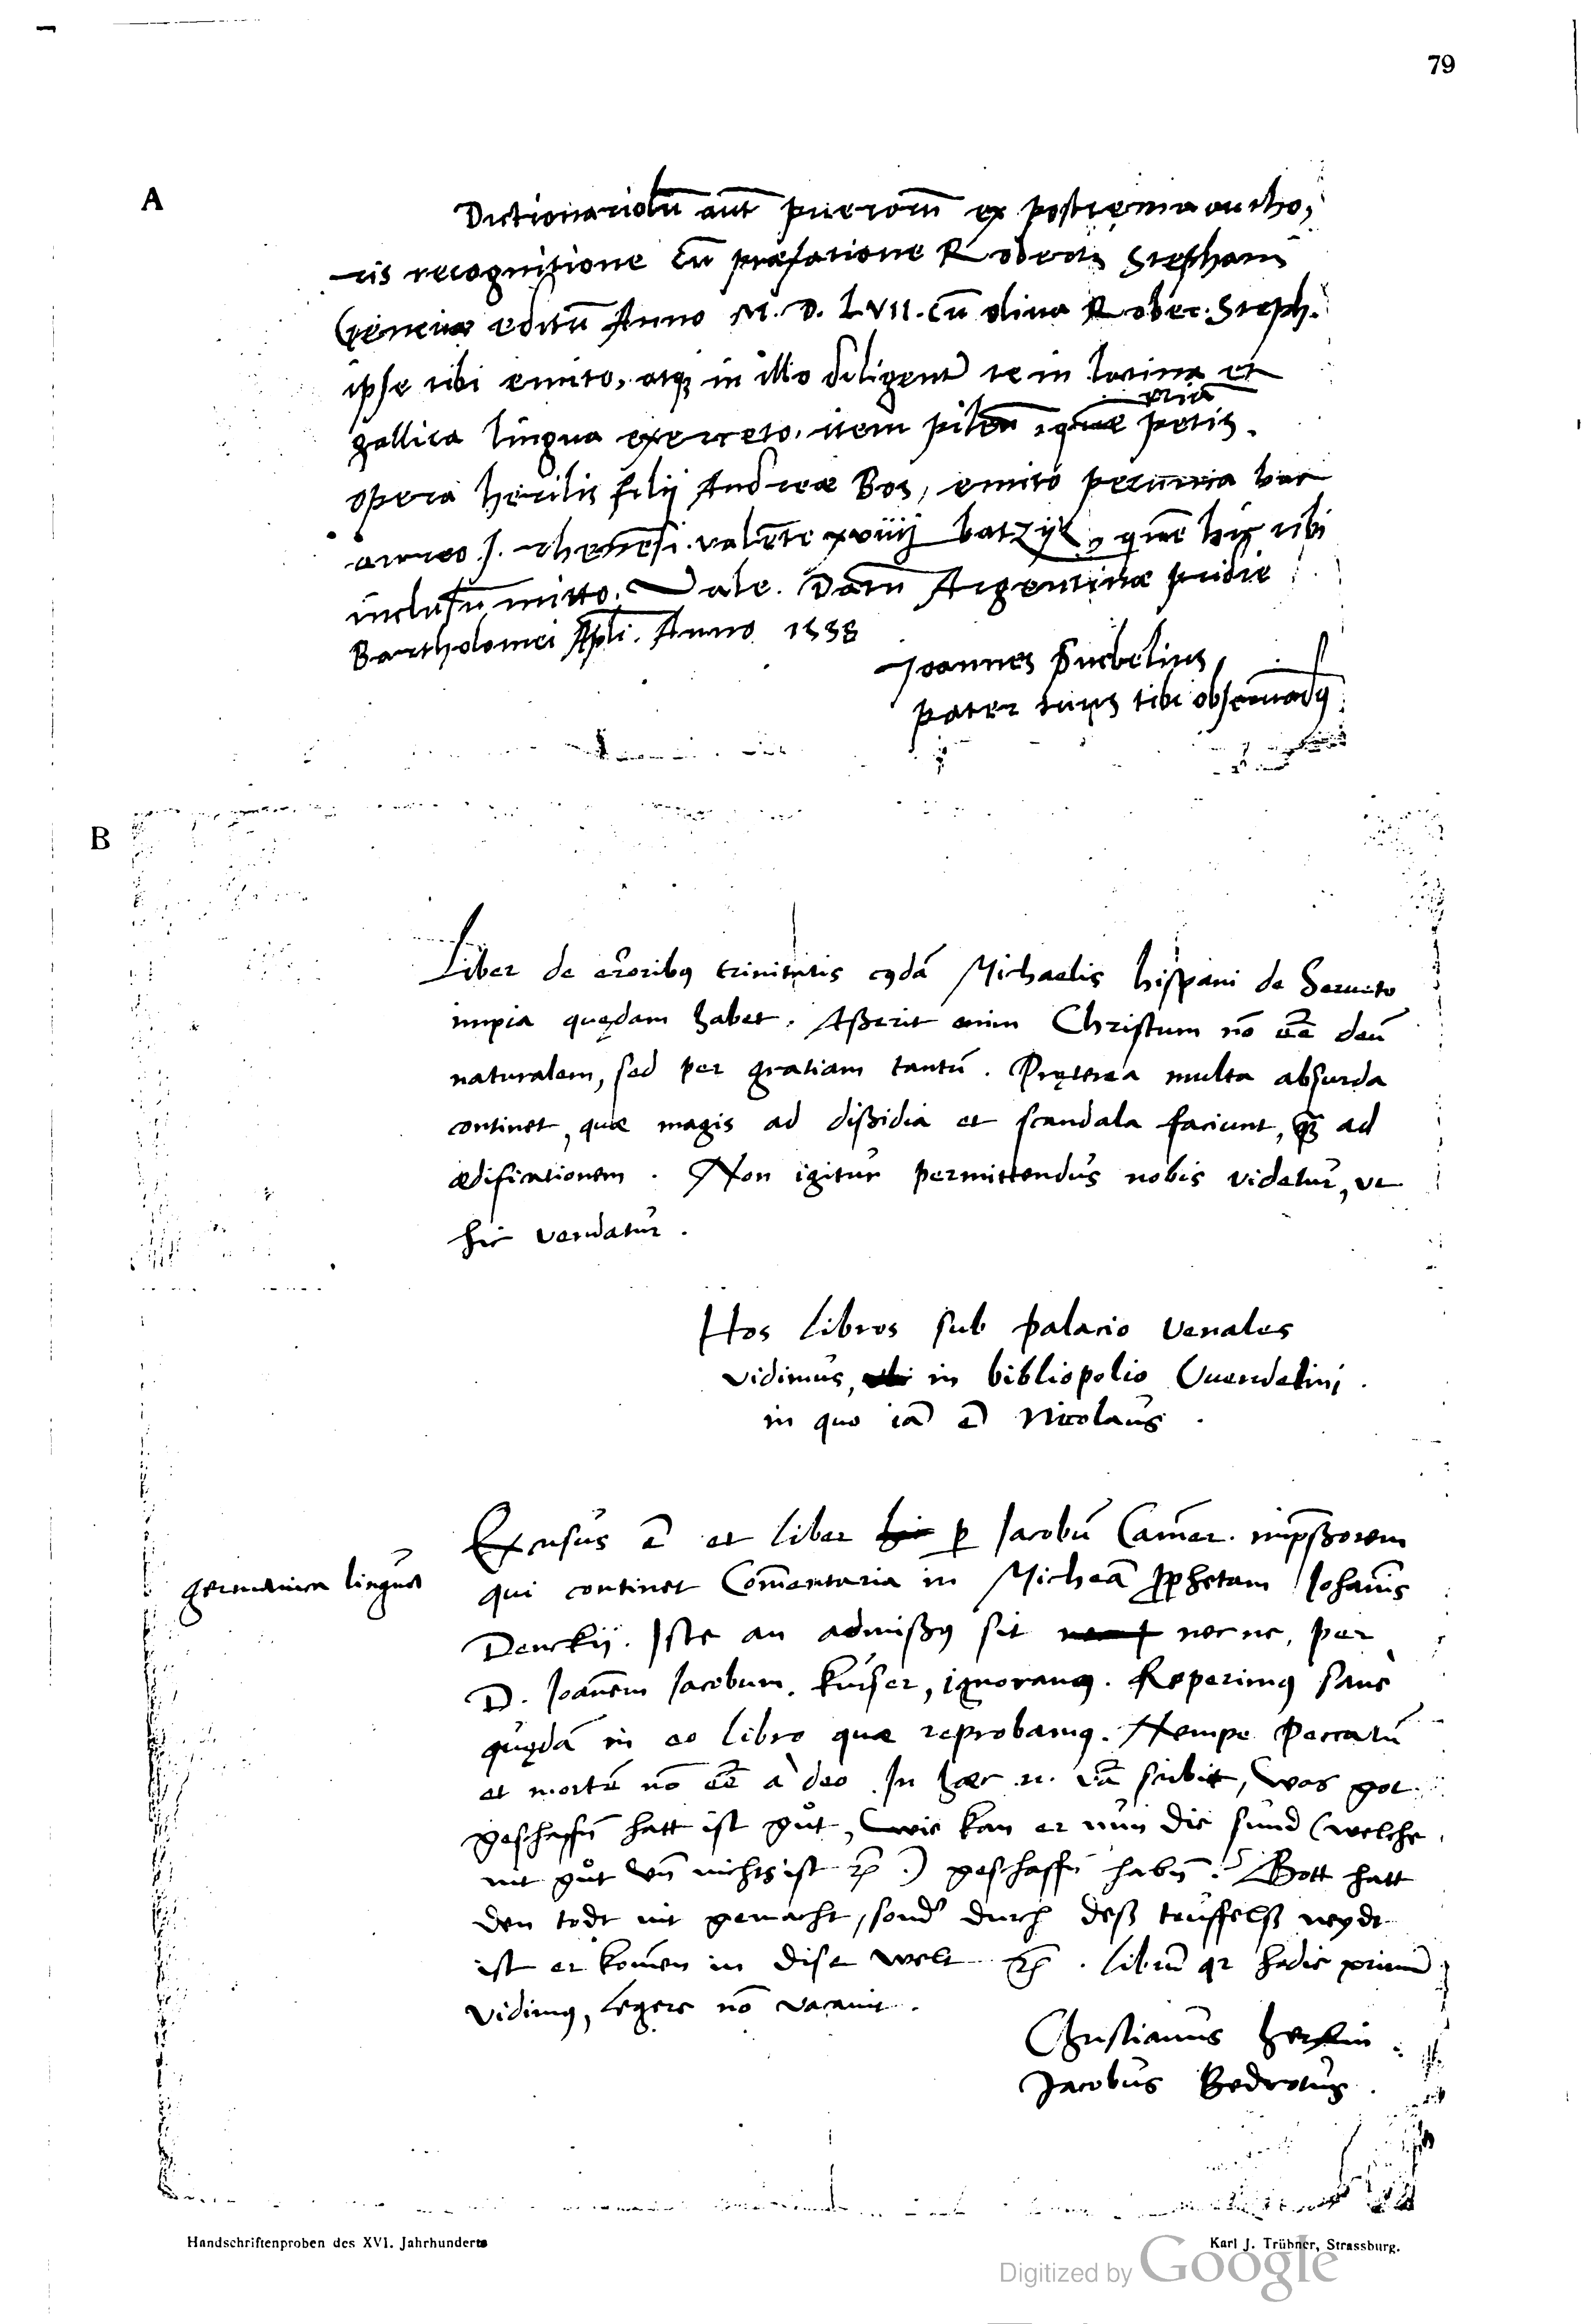 79
A
Dictionariolū aūt puerorū ex postrema autho,
ris recognitione cū præfatione Roberti Stephani
Genevæ editū Anno M. D. LVII. cū oliva Rober. Steph.
ipse tibi emito, atq; in illo diligent te in latina et
gallica lingua exerceto. item
etiā
petis.
opera herilis filij Andreæ Bos, emito pecunia hac
aureo .s. rhenēsi. valēte xviiij batzijs, quē hic tibi
inclusū mitto. Vale. Datū Argentinæ pridie
Bartholomei Apli. Anno 1558
Joannes
pater tuus tibi observādꝰ
B
Liber de eroribꝰ trinitatis cꝰdā Michaelis hispani de Serueto
impia quędam habet. Aßerit enim Christum nō eē deū
naturalem, sed per gratiam tantū. Pręterea multa absurda
continet, quæ magis ad dißidia et scandala faciunt, qꝫ ad
ædificationem. Non igitur permittendus nobis videtur, vt
hic vendatur.
Hos libros sub palacio venales
vidimus, in bibliopolio Vuendelini.
in quo iā ē Nicolaus.
Excusus ē et liber hic ꝑ Jacobū Camer. impßorem
germanica lingua
qui continet Comentaria in Micheā ꝓphetam Johanis
Denckij. Iste an admißꝰ sit necne, per
D. Joanem Jacobum. kniser, ignoramꝰ. Reperimꝰ sane
quędā in eo libro quæ reprobamꝰ. Nempe peccatū
et mortē nō eē à deo. In hæc .n. vā scribit, was got
geschaffn̄ hatt ist gůt, wie kan er nun die sund (welche
nit gůt vn̄ nichts ist ꝛc.) geschaffn̄ habn̄? Gott hatt
den todt nit gemacht, sond durch deß teuffelß neydt
ist er komen in dise welt ꝛc. librū qr hodie primū
vidimꝰ, legere nō vacauit.
Christianus herlin.
Jacobus Bedrotus.
Handschriftenproben des XVI. Jahrhunderts
Karl J. Trübner, Strassburg.
Digitized by Google